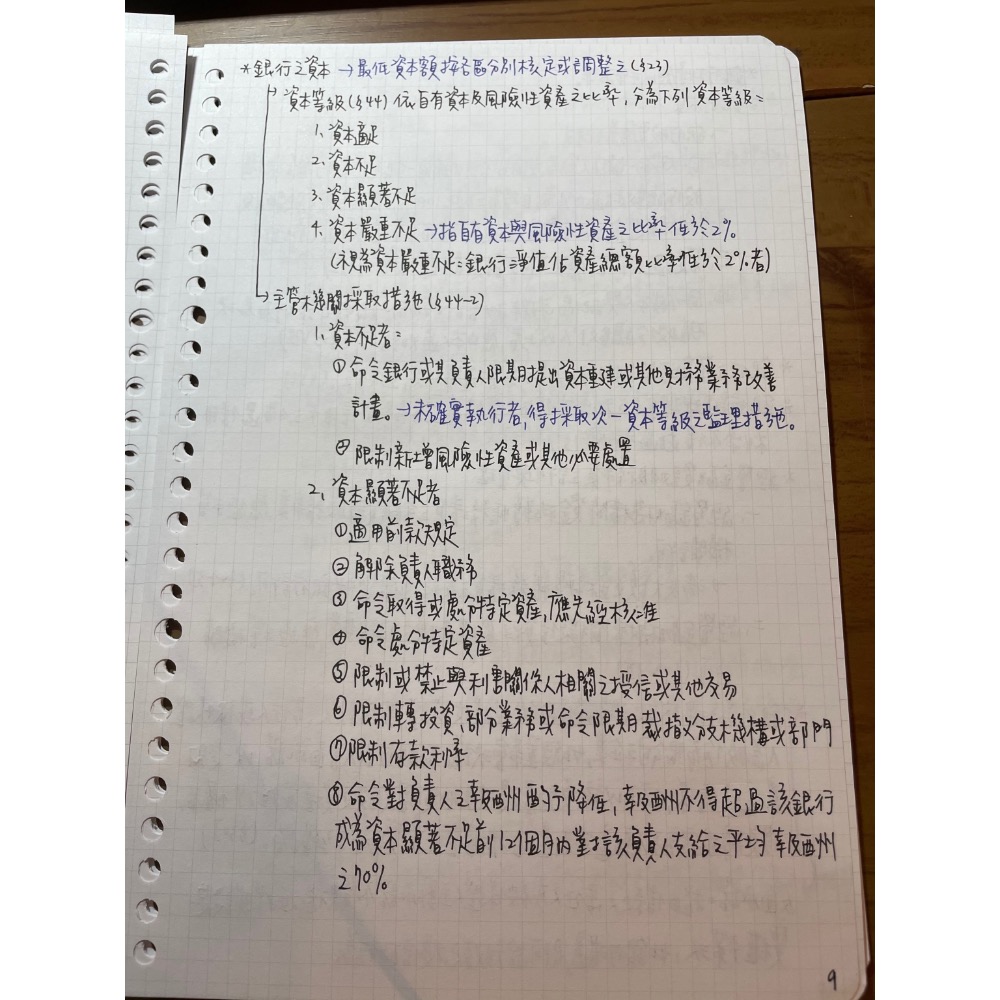 *銀行之資本→最低資本額按各區分別核定或調整之(§23)
→資本等級(§44)依自有資本及風險性資產之比率,分為下列資本等級:
1、資本適足
2、資本不足
3、資本顯著不足
4、資本嚴重不足→指自有資本與風險性資產之比率低於2%
(視為資本嚴重不足:銀行淨值佔資產總額比率低於2%者)
→主管機關採取措施(§44-2)
1、資本不足者:
①命令銀行或其負責人限期提出資本重建或其他財務業務改善
計畫。→未確實執行者,得採取次一資本等級之監理措施。
②限制新增風險性資產或其他必要處置
2、資本顯著不足者
①適用前款規定
②解除負責人職務
③命令取得或處分特定資產,應先經核准
④命令處分特定資產
⑤限制或禁止與利害關係人相關之授信或其他交易
⑥限制轉投資、部分業務或命令限期裁撤分支機構或部門
⑦限制存款利率
⑧命令對負責人之報酬酌予降低,報酬不得超過該銀行
成為資本顯著不足前12個月內對該負責人支給之平均報酬
之70%
9